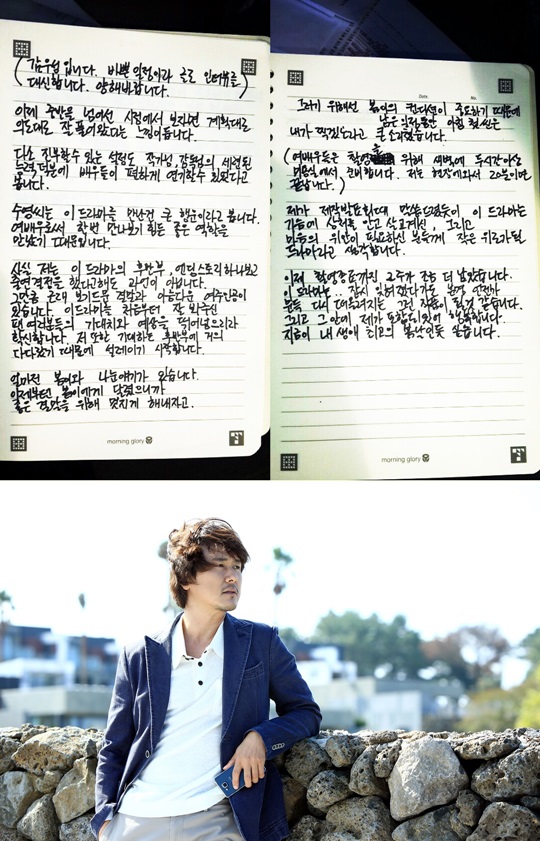 (감우성입니다. 바쁜 일정이라 글로 인터뷰를
대신합니다. 양해바랍니다.)
이제 중반을 넘어선 시점에서 보자면 계획대로
의도대로 잘 풀어왔다는 느낌이듭니다.
다소 진부할수 있는 설정도 작가님, 감독님의 세련된
감력 덕분에 배우들이 편하게 연기할수 있었다고
봅니다.
수영씨는 이 드라마를 만난건 큰 행운이라고 봅니다.
여배우로서 한번 만나보기 힘든 좋은 역할을
만났기 때문입니다.
사실 저는 이 드라마의 후반부, 엔딩스토리 하나보고
출연결정을 했다고해도 과언이 아닙니다.
그만큼 근래 보기드문 결말과 아름다운 여주인공이
있습니다. 이드라마를 처음부터 잘 봐주신
팬 여러분들의 기대치와 예상을 뛰어넘으리라
확신합니다. 저 또한 기대하는 후반부에 거의
다다랐기 때문에 설레이기 시작합니다.
얼마전 봄이와 나눈얘기가 있습니다.
이제부턴 봄이에게 달렸으니까
좋은 결말을 위해 멋지게 해내자고.
morning glory
Date: No.
그러기 위해선 봄이의 컨디션이 중요하기 때문에
남은 일정동안 아침 첫 씬은
내가 찍겠노라고 큰소리쳤습니다.
(여배우들은 촬영을 위해 새벽에 두시간이상
미용실에서 준비합니다. 저는 현장에와서 20분이면
끝납니다.)
제가 제작발표회때 말씀드렸듯이 이 드라마는
가슴에 상처를 안고 살고계신, 그리고
마음의 위안이 필요하신 분들께 작은 위로가될
드라마라고 생각합니다.
이제 촬영종료까진 2주가 조금 더 남았습니다.
이 드라마는 잠시 잊혀졌다가도 불쌍 언젠가
문득 다시 떠오려지는 그런 작품이 될것 같습니다.
그리고 그 안에 제가 포함되있어 행복합니다.
지금이 내 생애 최고의 봄날인듯 싶습니다.
morning glory